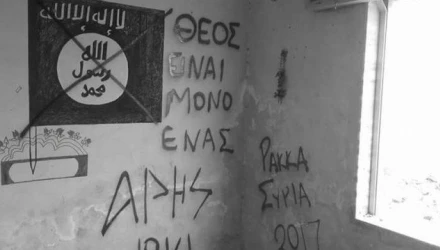 لا إله إلا الله
الله
رسول
محمد
ΘΕΟΣ
ΕΝΑΙ
ΜΟΝΟ
ΕΝΑΣ
ΑΡΗS
ΡΑΚΚΑ
ΣΥΡΙΑ
2017